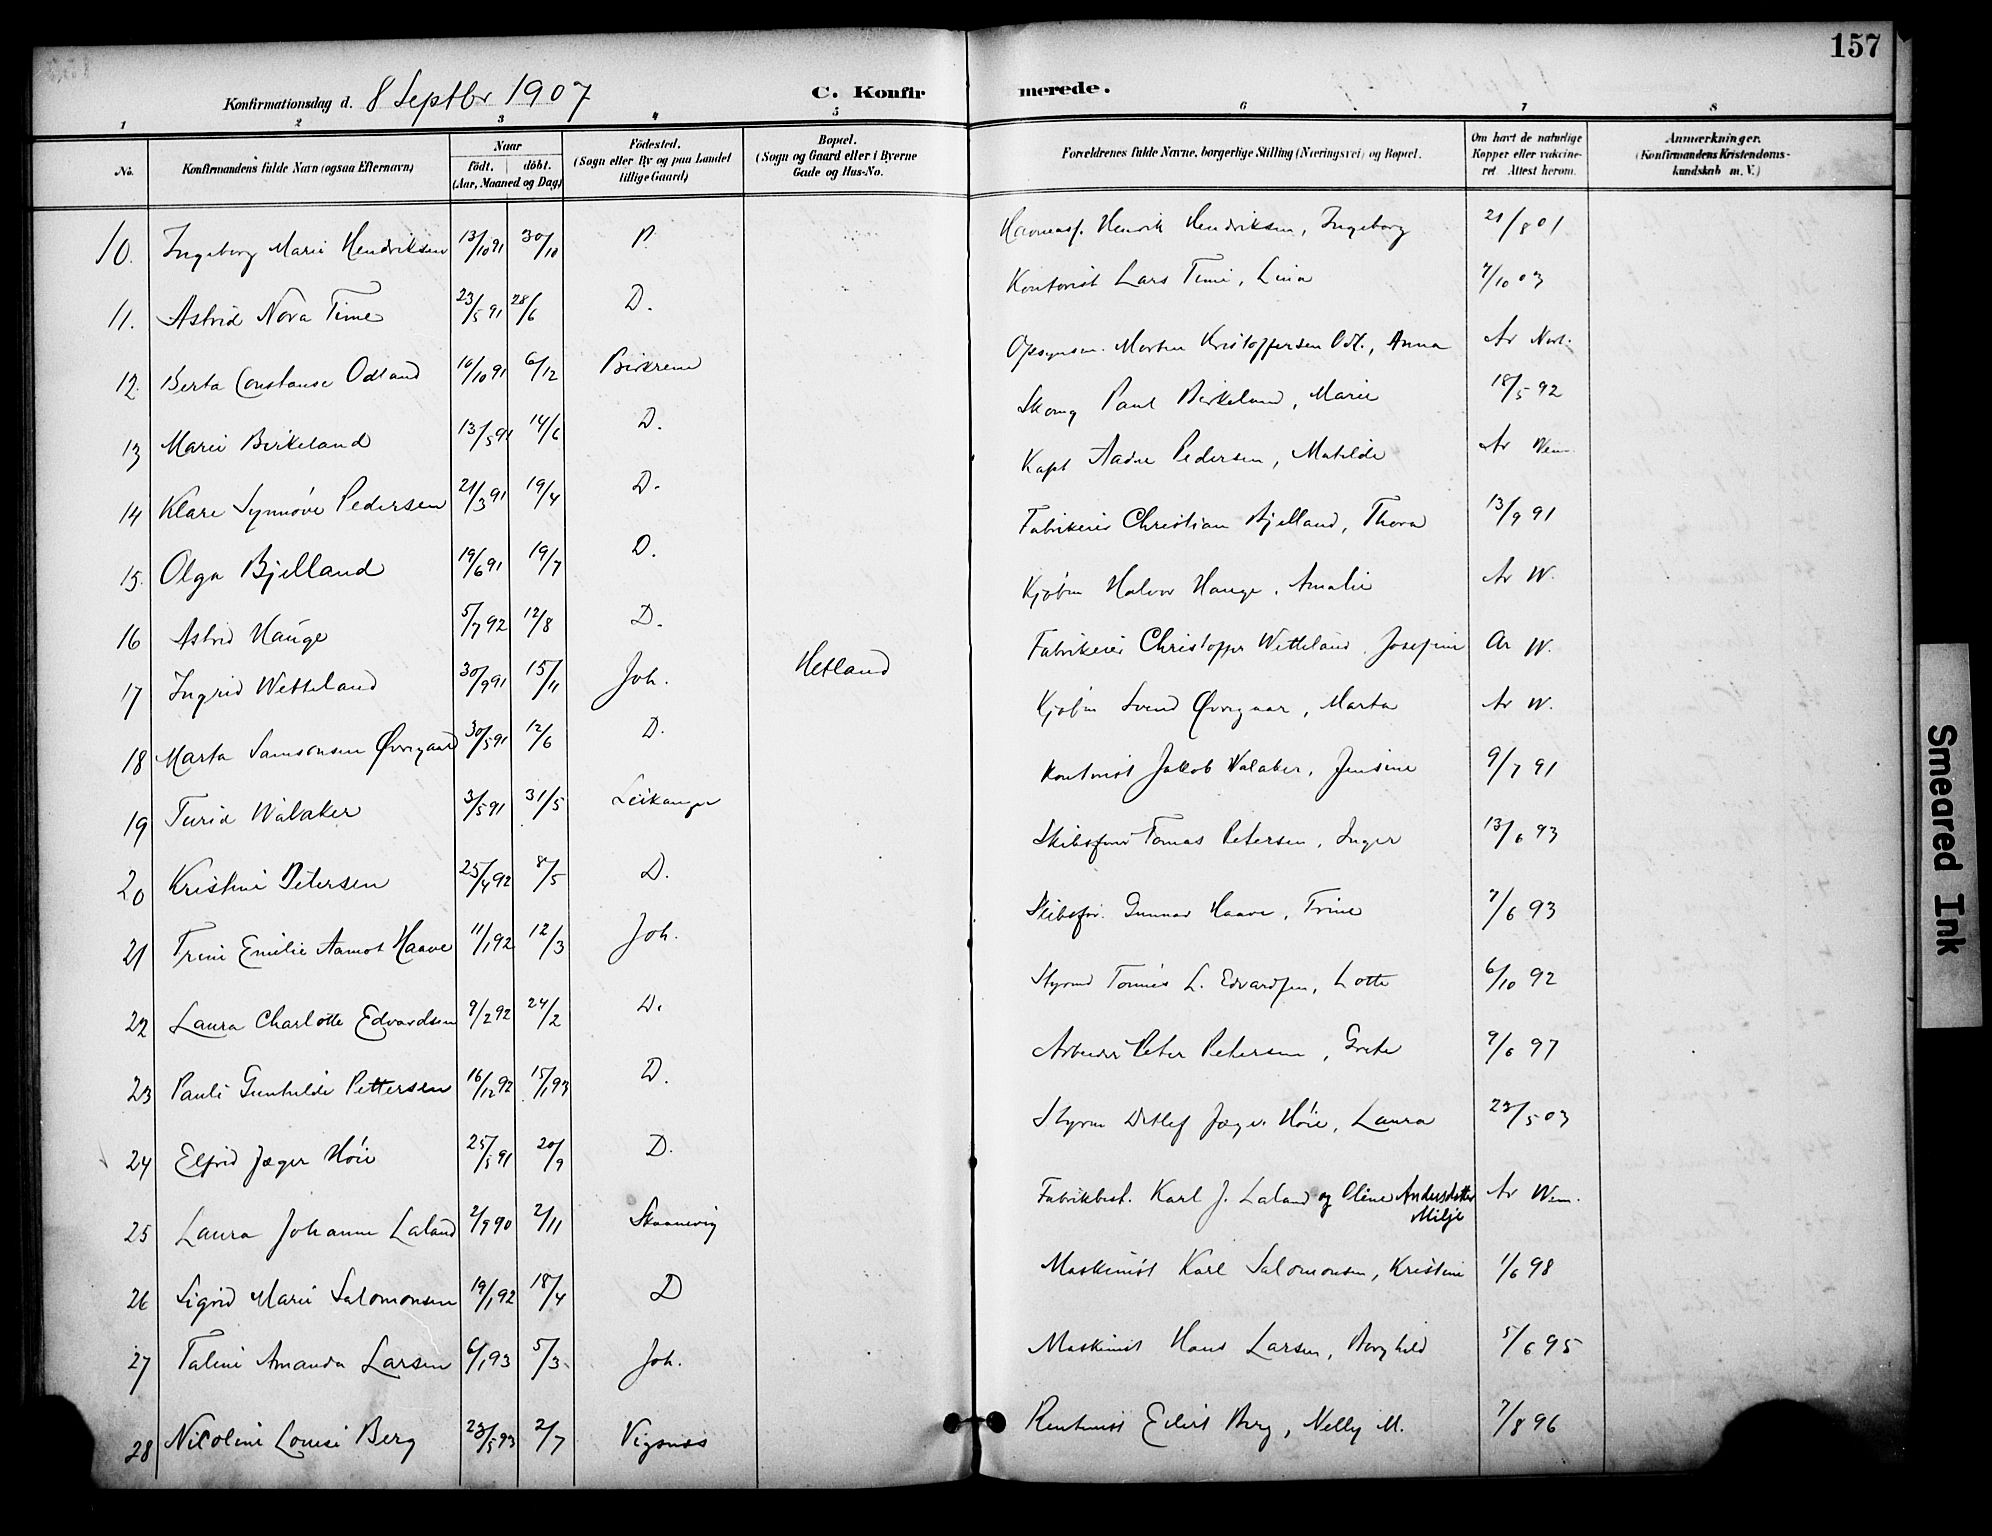 157
Konfirmationsdag d. 8 Septbr 1907 C. Konfirmerede.
1 2 3 4 5 6 7 8
No. Konfirmandens fulde Navn (ogsaa Efternavn) Naar født. døbt. (Aar, Maaned og Dag) Fødested. (Sogn eller By og paa Landet tillige Gaard) Bopæl. (Sogn og Gaard eller i Byerne Gade og Hus-No. Forældrenes fulde Navne, borgerlige Stilling (Næringsvei) og Bopæl. Om havt de naturlige Kopper eller vaccineret. Attest herom. Anmærkninger. (Konfirmandens Kristendomskundskab m. V.)
10. Ingeborg Marie Hendriksen 13/10 91 30/10 Henrik Hendriksen, Ingeborg 21/8 01
11. Astrid Nora Time 23/5 91 28/6 D. Kontorist Lars Time, Lina 7/10 03
12. Berta Constanse Odland 10/10 91 6/12 Birkrem Opsynsm. Morten Kristoffersen Odl., Anna Ar
13 Marie Birkeland 13/5 91 14/6 D. Skomg Paul Birkeland, Marie 18/5 92
14 Klare Synnøve Pedersen 21/3 91 19/4 D. Kapt Aadne Pedersen, Matilde Ar Wem
15. Olga Bjelland 19/6 91 19/7 D. Fabrikeier Christian Bjelland, Thora 13/9 91
16 Astrid Hauge 5/7 92 12/8 D. Kjøbm Halvor Hauge, Amalie Ar W.
17 Ingrid Wetteland 30/9 91 15/11 Joh. Hetland Fabrikeier Christopher Wetteland, Josefine Ar W.
18 Marta Samsonsen Øvregaard 30/5 91 12/6 D. Kjøbm Svend Øvregaar, Marta Ar W.
19 Turid Walaker 3/5 91 31/5 Leikanger Kontorist Jakob Walaker, Jensine 9/7 91
20 Kristine Petersen 25/4 92 8/5 D. Skibsfører Tomas Petersen, Inger 13/6 93
21 Trine Emilie Aamot Haave 11/1 92 12/3 Joh. Skibsfør. Gunnar Haave, Trine 7/6 93
22 Laura Charlotte Edvardsen 9/2 92 24/2 D. Styrmd Tonnes L. Edvardsen, Lotte 6/10 92
23 Paule Gunhilde Pettersen 16/12 92 15/1 93 D. Arbeider Peter Petersen, Grete 9/6 97
24 Elfrid Jæger Høie 25/5 91 20/9 D. Styrm Detlef Jæger Høie, Laura 23/5 03
25 Laura Johanne Laland 2/9 90 2/11 Skaanevig Fabrikbest. Karl J. Laland og Oline Andersdatter Ar Wem.
Milje
26 Sigrid Marie Salomonsen 19/1 92 18/4 D Maskinist Karl Salomonsen, Kristine 1/6 98
27 Taline Amanda Larsen 6/1 93 5/3 Joh. Maskinist Hans Larsen, Borghild 5/6 95
28 Nicoline Louise Berg 23/5 93 2/7 Vigsnes Rentenist Eilert Berg, Nelly M. 7/8 96
Smeared Ink